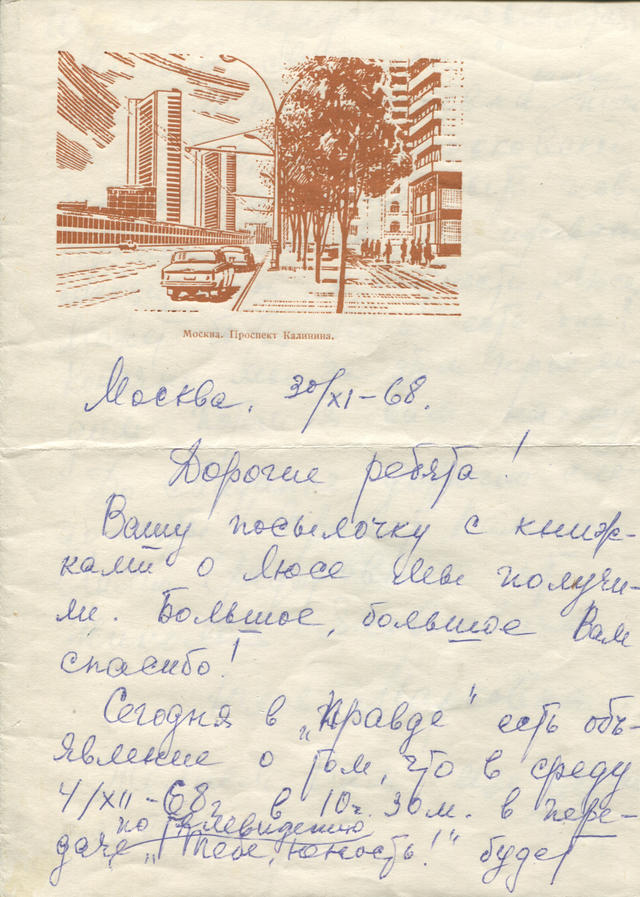 Москва. Проспект Калинина.
Москва. 30/XI-68.
Дорогие ребята!
Вашу посылочку с книж-
ками о Люсе мы получи-
ли. Большое, большое Вам
спасибо!
Сегодня в „Правде" есть объ-
явление о том, что в среду
4/XII-68г. в 10ч. 30м. в пере-
по телевидению
даче „Тебе, юность!" будет